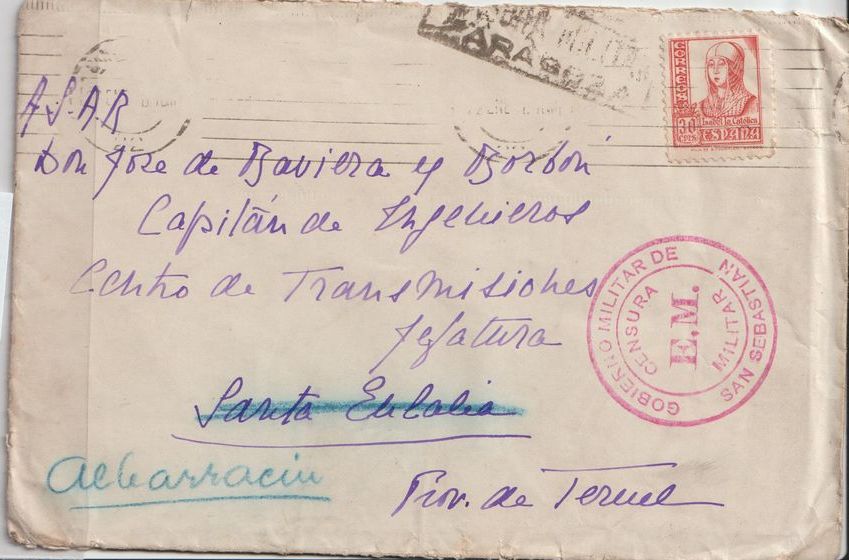 ZARAGOZA
CORREOS
30 CTS.
Isabel la Católica
ESPAÑA
A S.A.R
Don Jose de Baviera y Borbón
Capitán de Ingenieros
Centro de Transmisiones
Jefatura
Santa Eulalia
Albarracin
Prov. de Teruel
GOBIERNO MILITAR DE
SAN SEBASTIAN
CENSURA
MILITAR
E.M.